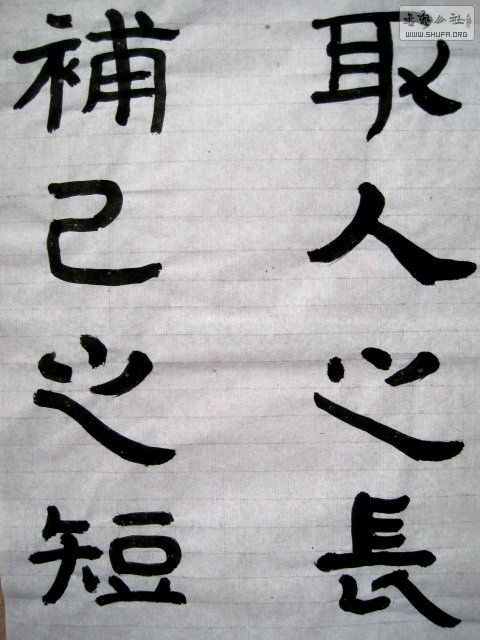 取人之長
補己之短
書藝公社
WWW.SHUFA.ORG